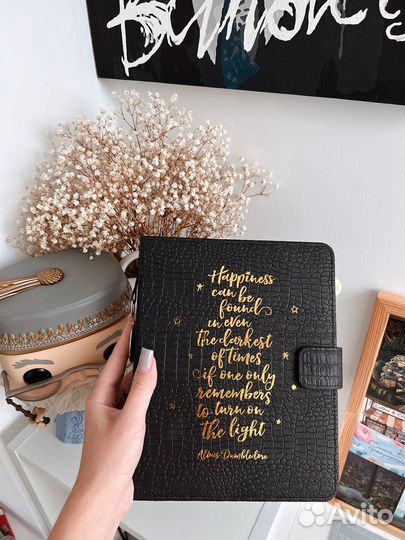 Happiness
can be
found
in even
the darkest
of times
if one only
remembers
to turn on
the light
Albus Dumbledore
Avito